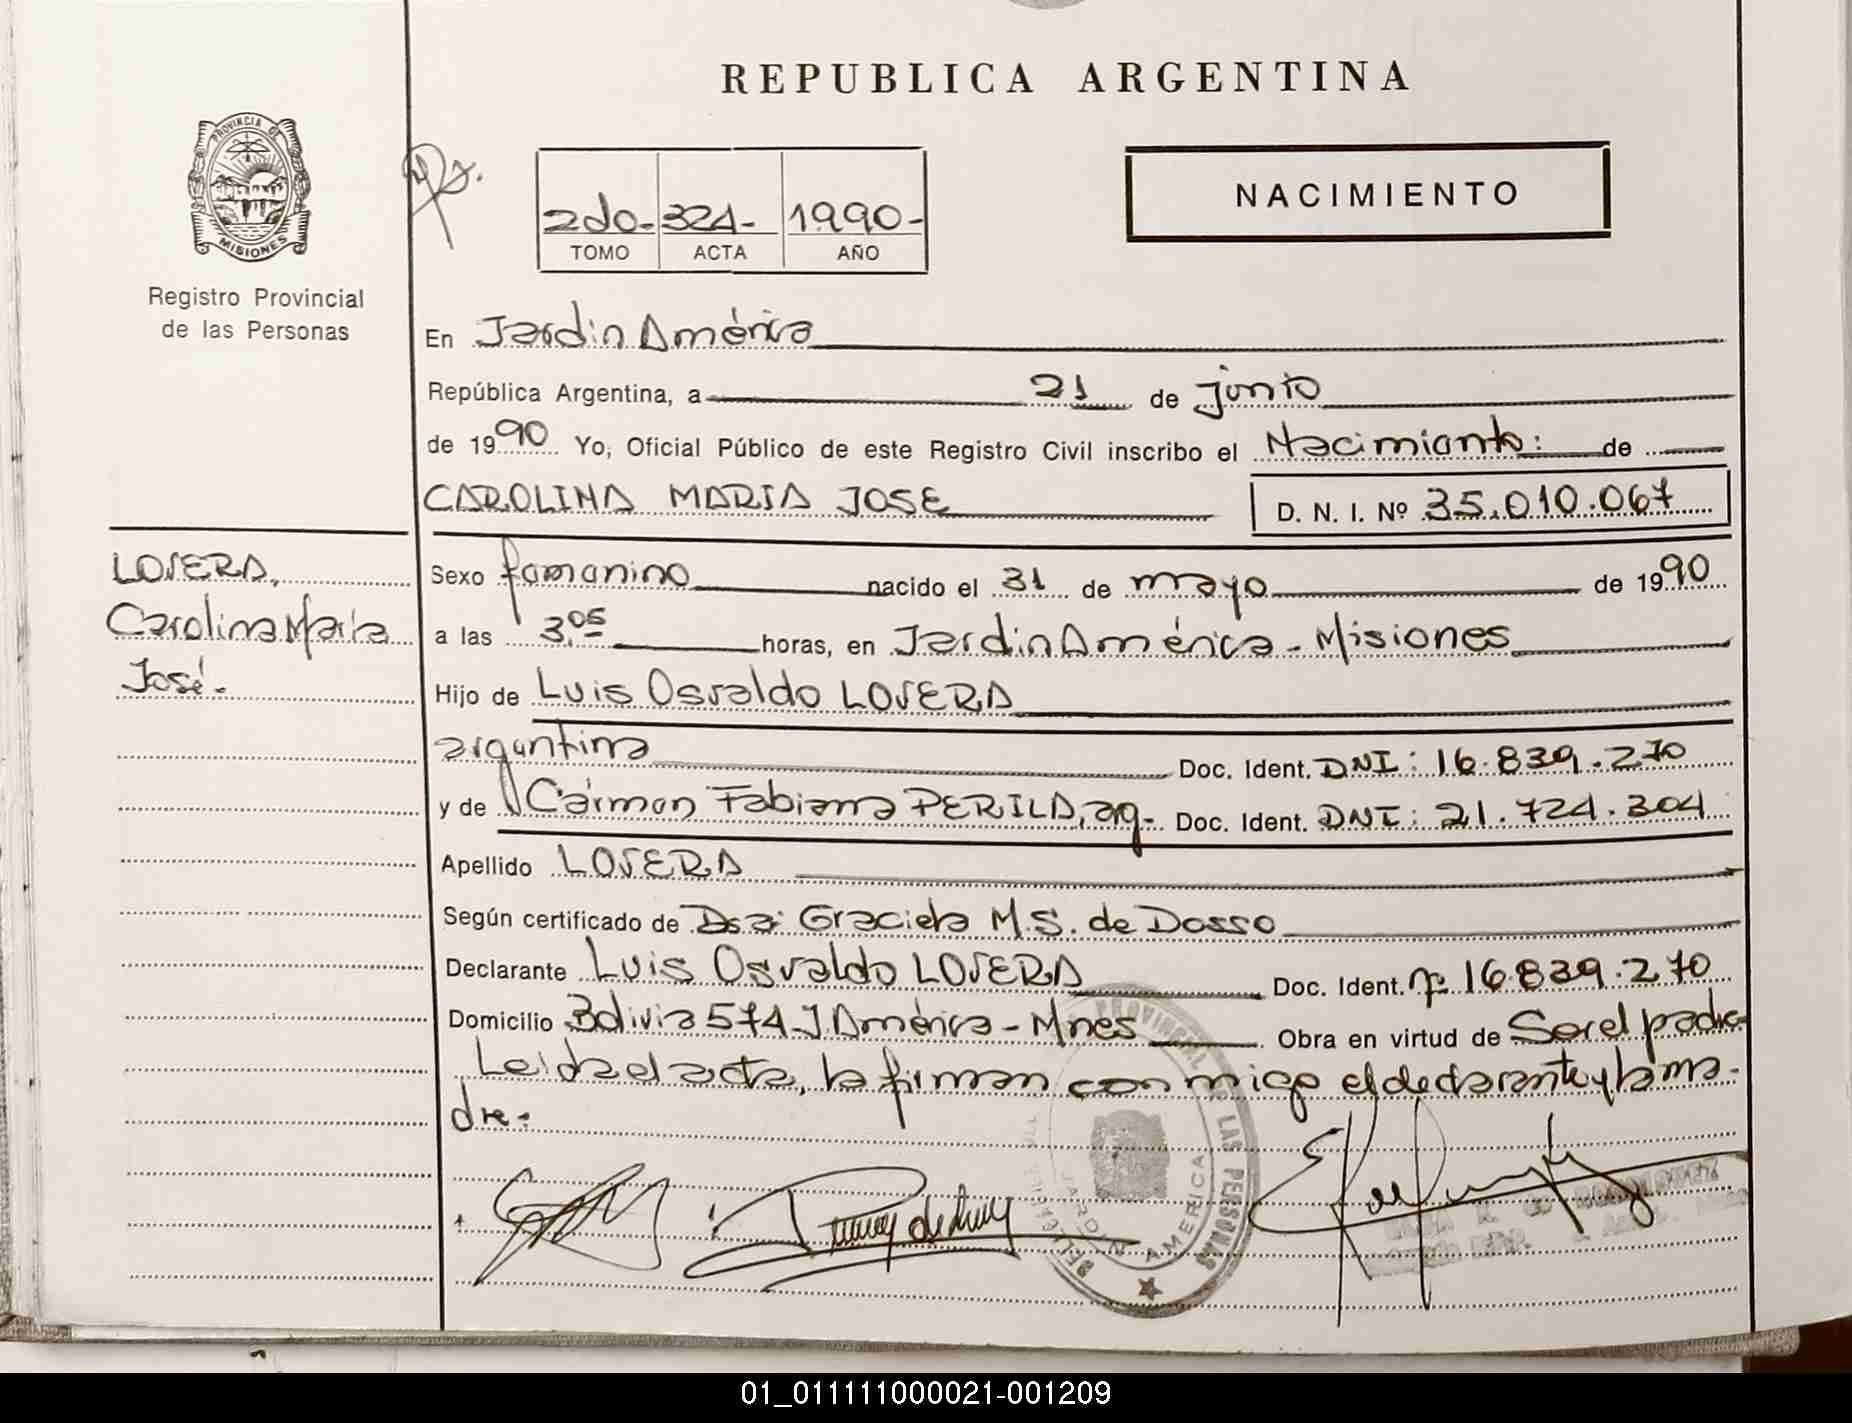 REPUBLICA ARGENTINA
PROVINCIA DE
MISIONES
Registro Provincial
de las Personas
2do- 324- 1990-
TOMO ACTA AÑO
NACIMIENTO
En Jardin América
República Argentina, a 21 de junio
de 1990 Yo, Oficial Público de este Registro Civil inscribo el Nacimiento: de
CAROLINA MARIA JOSE D. N. I. Nº 35.010.067
LOVERA,
Carolina María
José.-
Sexo femenino nacido el 31 de mayo de 1990
a las 3,05 horas, en Jardin América - Misiones
Hijo de Luis Osvaldo LOVERA
argentina Doc. Ident. DNI: 16.839.270
y de Carmen Fabiana PERILA, arg- Doc. Ident. DNI: 21.724.304
Apellido LOVERA
Según certificado de Dra: Graciela M.S. de Dosso
Declarante Luis Osvaldo LOVERA Doc. Ident. Nº 16.839.270
Domicilio Bolivia 574 J. América - Mnes Obra en virtud de Ser el padre
Leida el acta, la firman conmigo el declarante y la ma-
dre:
PROVINCIAL DE LAS PERSONAS
JARDIN AMERICA
01_011111000021-001209